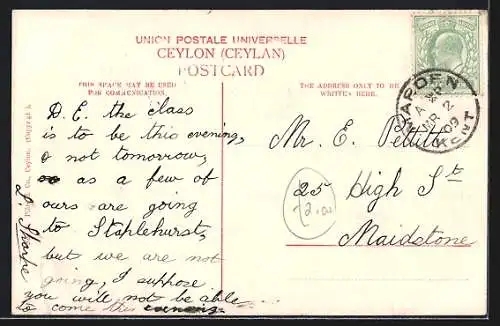 UNION POSTALE UNIVERSELLE
CEYLON (CEYLAN)
POSTCARD
THIS SPACE MAY BE USED
FOR COMMUNICATION.
THE ADDRESS ONLY TO BE
WRITTEN HERE.
D. E. the class
is to be this evening,
& not tomorrow,
as a few of
ours are going
to Staplehurst,
but we are not
going, I suppose
you will not be able
to come this evening
Mr. E. Pettitt
25 High St
Maidstone
MARDEN
MR 2
09
KENT